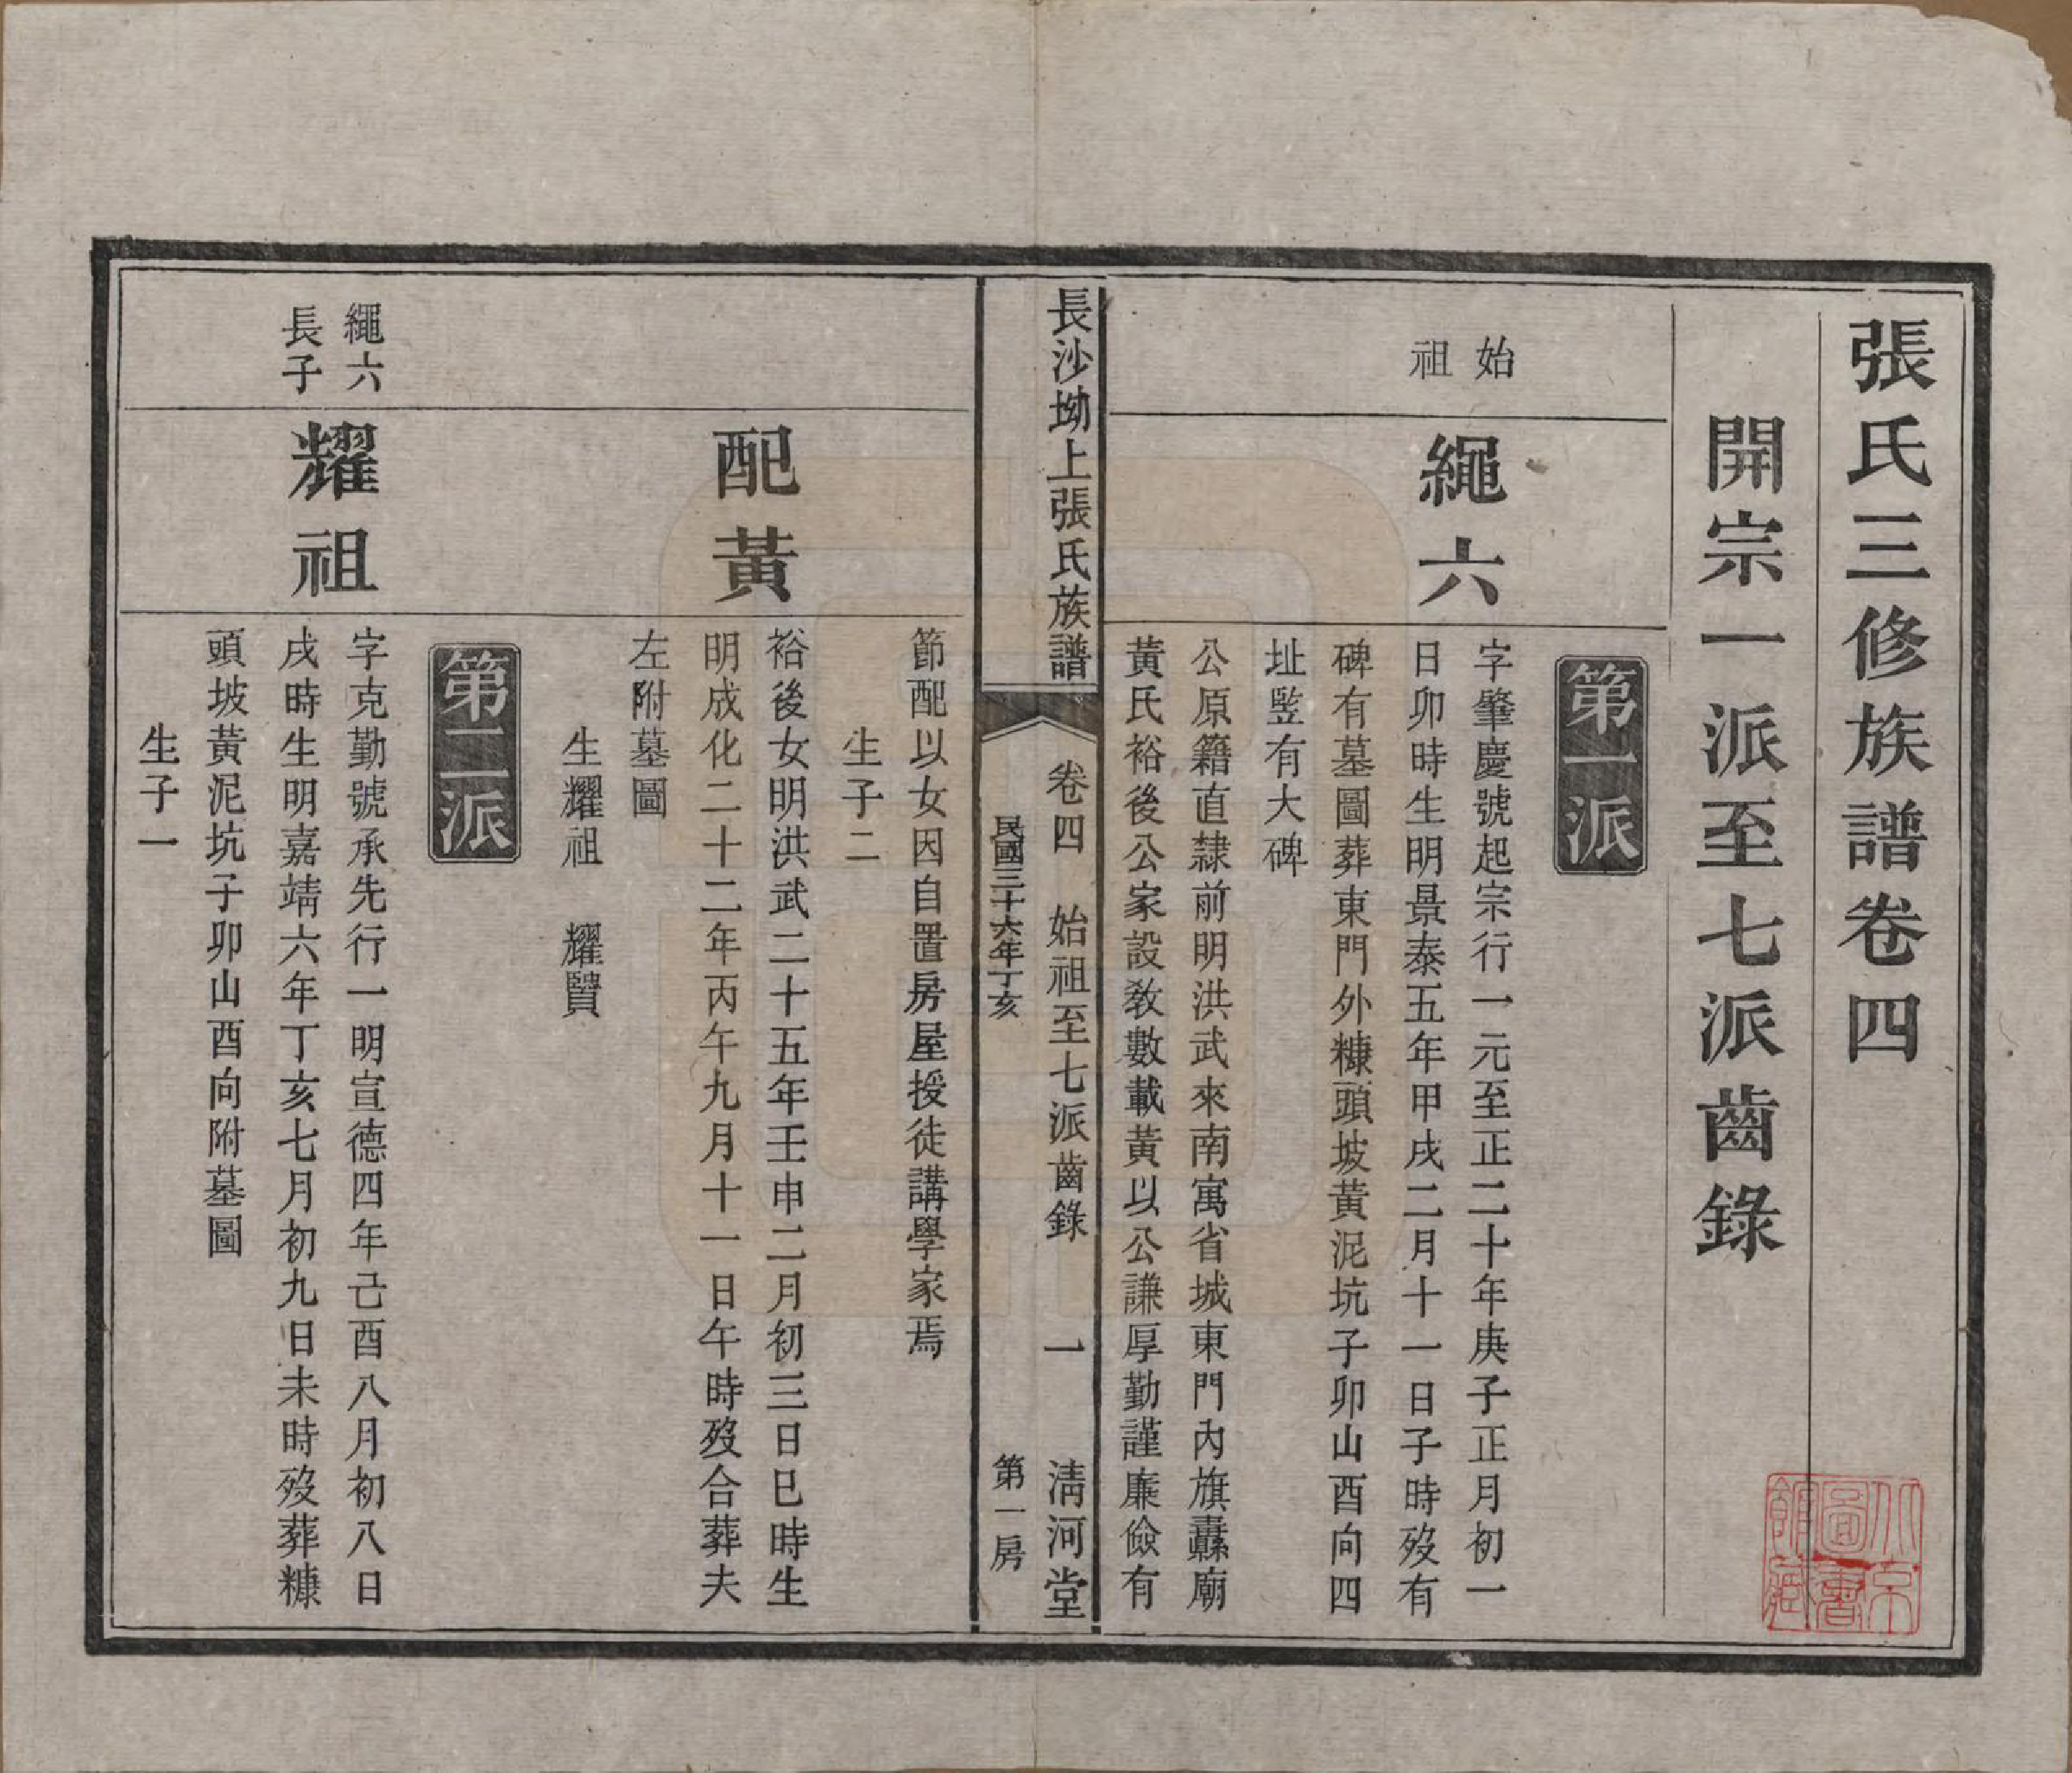 張氏三修族譜卷四
開宗一派至七派齒錄
第一派
始祖
繩六
字肇慶號起宗行一元至正二十年庚子正月初一
日卯時生明景泰五年甲戌二月十一日子時歿有
碑有墓圖葬東門外糠頭坡黃泥坑子卯山酉向四
址監有大碑
公原籍直隸前明洪武來南寓省城東門內旗纛廟
黃氏裕後公家設教數載黃以公謙厚勤謹廉儉有
長沙坳上張氏族譜
卷四 始祖至七派齒錄 一 淸河堂
民國三十六年丁亥 第一房
節配以女因自置房屋授徒講學家焉
生子二
配黃
裕後女明洪武二十五年壬申二月初三日巳時生
明成化二十二年丙午九月十一日午時歿合葬夫
左附墓圖
生耀祖 耀賢
第二派
繩六
長子
耀祖
字克勤號承先行一明宣德四年己酉八月初八日
戌時生明嘉靖六年丁亥七月初九日未時歿葬糠
頭坡黃泥坑子卯山酉向附墓圖
生子一
北京
圖書
館藏